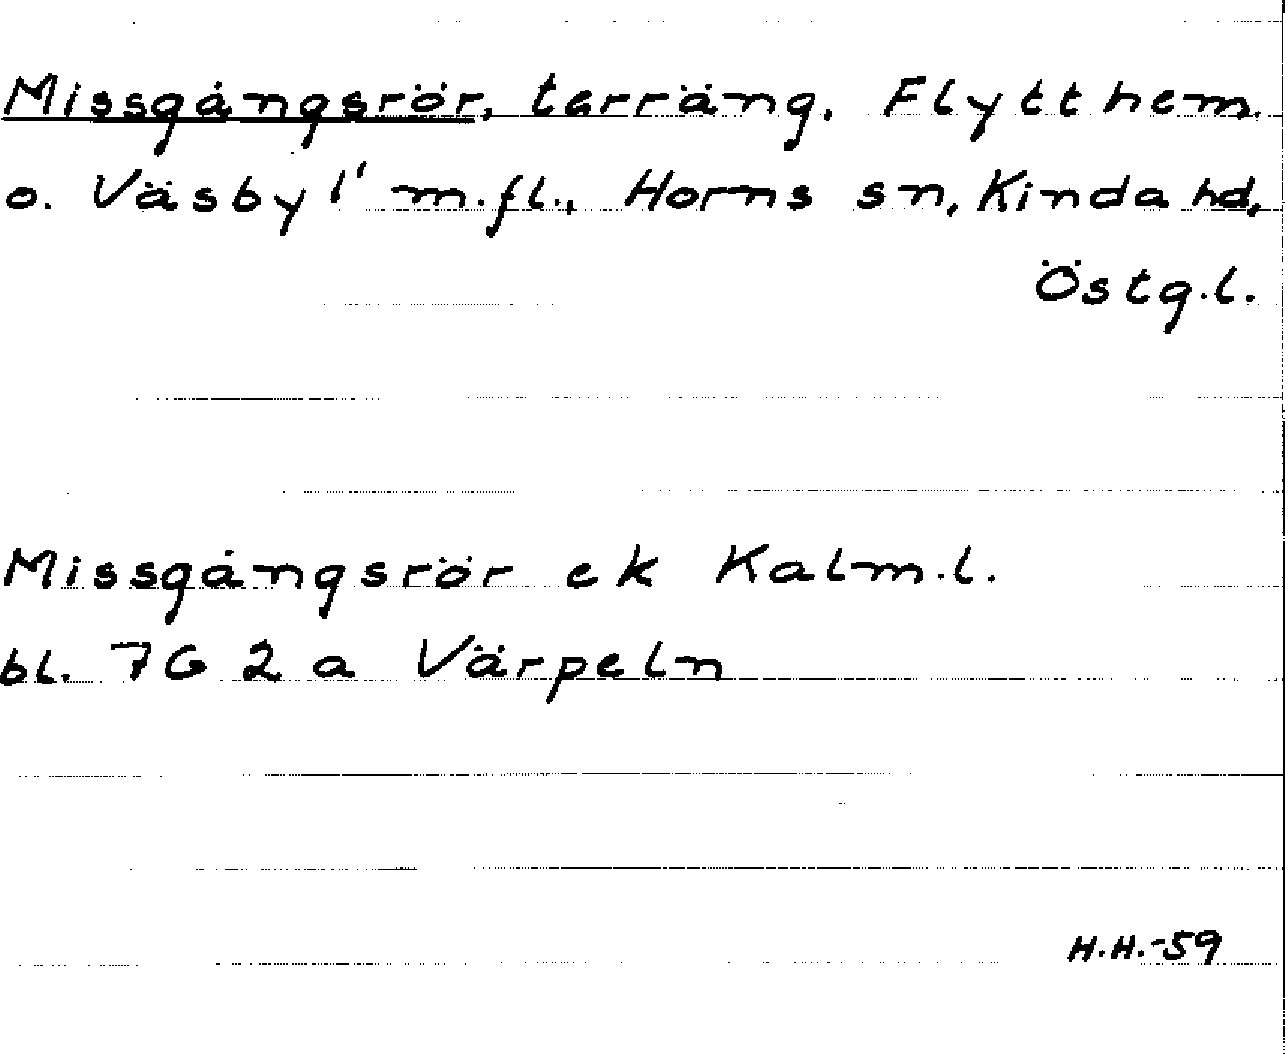 Missgångsrör, terräng, Flytthem
o. Väsby 1' m.fl., Horns sn, Kinda hd,
Östg.l.
Missgångsrör ek Kalm.l.
bl. 7G 2a Värpeln
H.H.-59